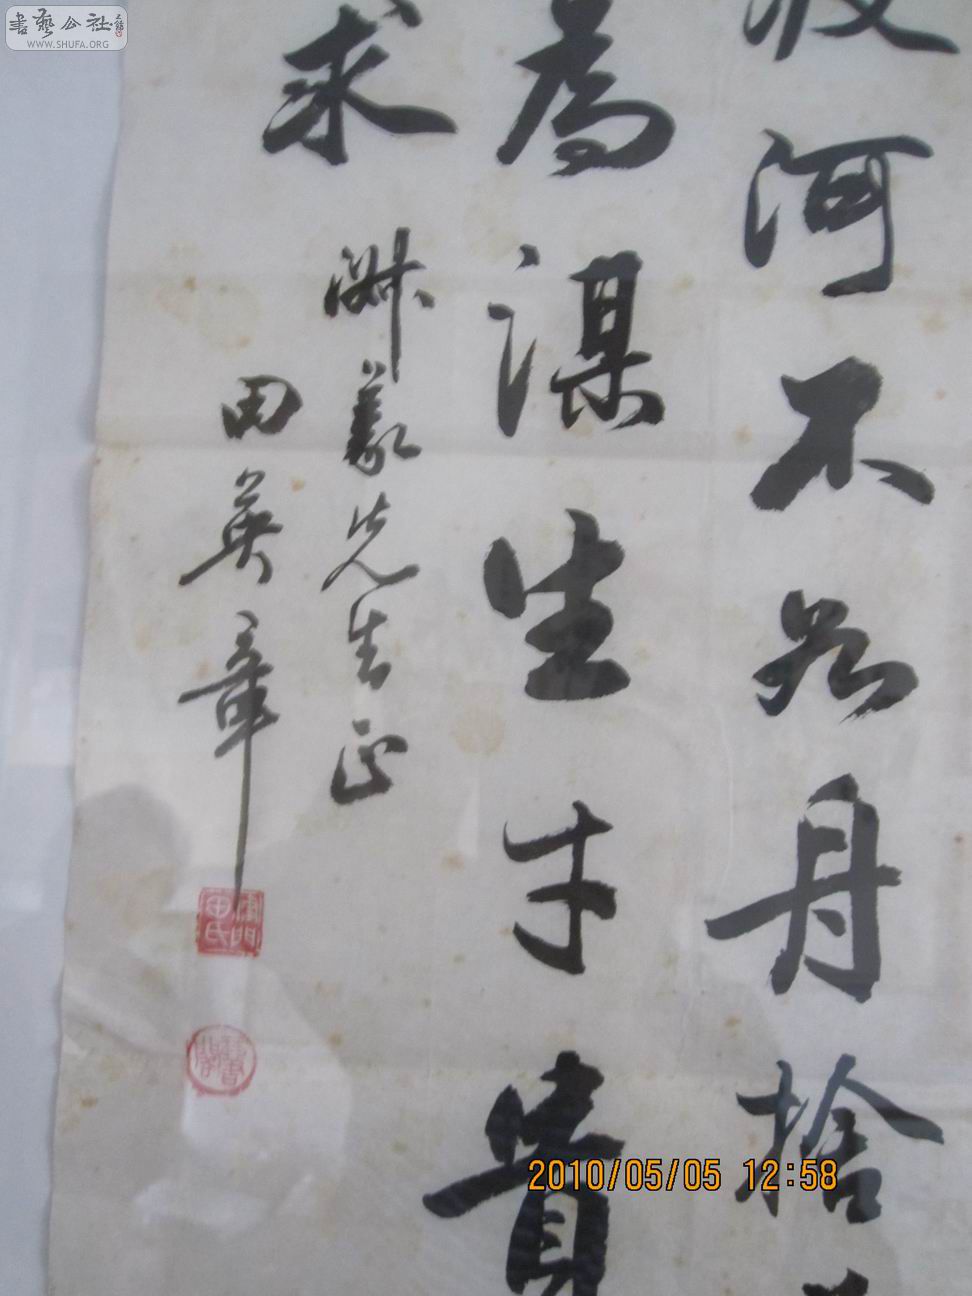 書藝公社
WWW.SHUFA.ORG
渡河不如舟捨
為謀生才貴
求
義先生正
田英章
津門田氏
2010/05/05 12:58